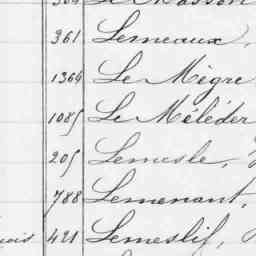 361 Lemeaux,
1364 Le Mègre
1085 Le Méléder
205 Lemesle,
788 Lemenant,
421 Lemeslif,